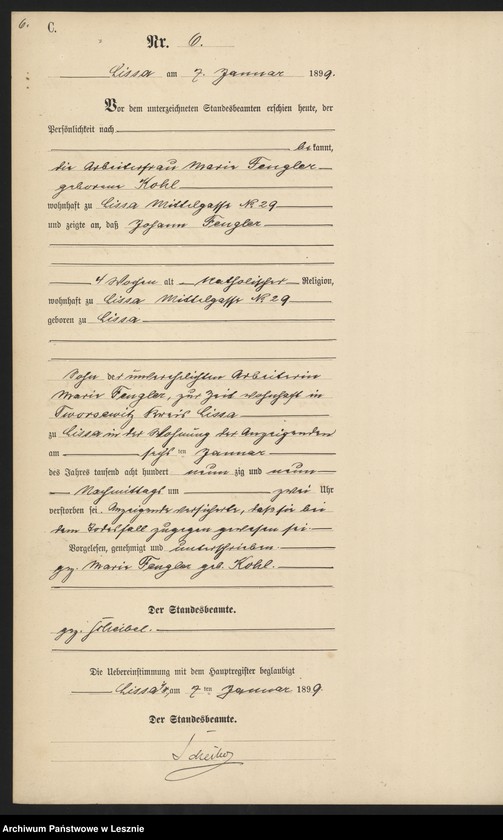 6.
C.
Nr. 6.
Lissa am 7. Januar 1899.
Vor dem unterzeichneten Standesbeamten erschien heute, der
Persönlichkeit nach
bekannt,
die Arbeiterfrau Marie Fengler
geborene Kohl
wohnhaft zu Lissa Mittelgasse No 29
und zeigte an, daß Johann Fengler
4 Wochen alt katholischer Religion,
wohnhaft zu Lissa Mittelgasse No 29
geboren zu Lissa
Sohn der unverehelichten Arbeiterin
Marie Fengler, zur Zeit wohnhaft in
Tworsewitz Kreis Lissa
zu Lissa in der Wohnung der Anzeigenden
am sechsten Januar
des Jahres tausend acht hundert neunzig und neun
Nachmittags um zwei Uhr
verstorben sei. Anzeigende versicherte, daß sie bei
dem Todesfall zugegen gewesen sei.
Vorgelesen, genehmigt und unterschrieben.
gz. Marie Fengler geb. Kohl.
Der Standesbeamte.
gz. Scheibel.
Die Uebereinstimmung mit dem Hauptregister beglaubigt
Lissa am 7ten Januar 1899.
Der Standesbeamte.
Archiwum Państwowe w Lesznie